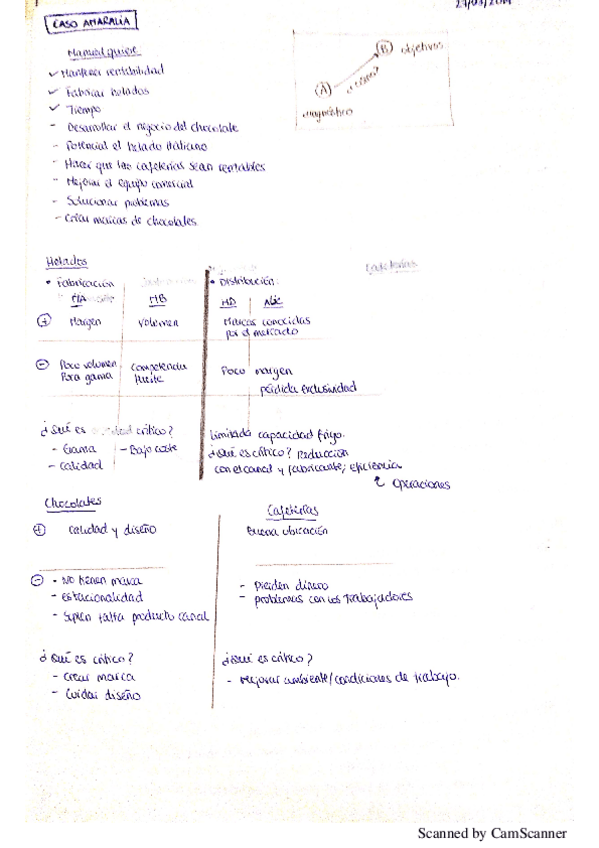 27/03/2019
CASO AMARALIA
Manuel quiere
✓ Mantener rentabilidad
✓ Fabricar helados
✓ Tiempo
- Desarrollar el negocio del chocolate
- Potencial el helado italiano
- Hacer que las cafeterías sean rentables
- Mejorar el equipo comercial
- Solucionar problemas
- Crear marcas de chocolates.
(A) (B) objetivos
¿cómo?
diagnóstico
Helados
• Fabricación
• Distribución:
Cafeterías
HA HB HD ABC
⊕ Margen Volumen Marcas conocidas
por el mercado
⊖ Poco volumen Competencia Poco margen
Poca gama fuerte pérdida exclusividad
¿Qué es crítico? Limitada capacidad frigo.
- Gama - Bajo coste ¿Qué es crítico?
- Calidad con el canal y fabricante; eficiencia
Operaciones
Chocolates Cafeterías
⊕ Calidad y diseño Buena ubicación
⊖ - No tienen marca - Pierden dinero
- estacionalidad - problemas con los trabajadores
- Suplen falta producto canal
¿Qué es crítico? ¿Qué es crítico?
- Crear marca - Mejorar ambiente/condiciones de trabajo.
- Cuidar diseño
Scanned by CamScanner